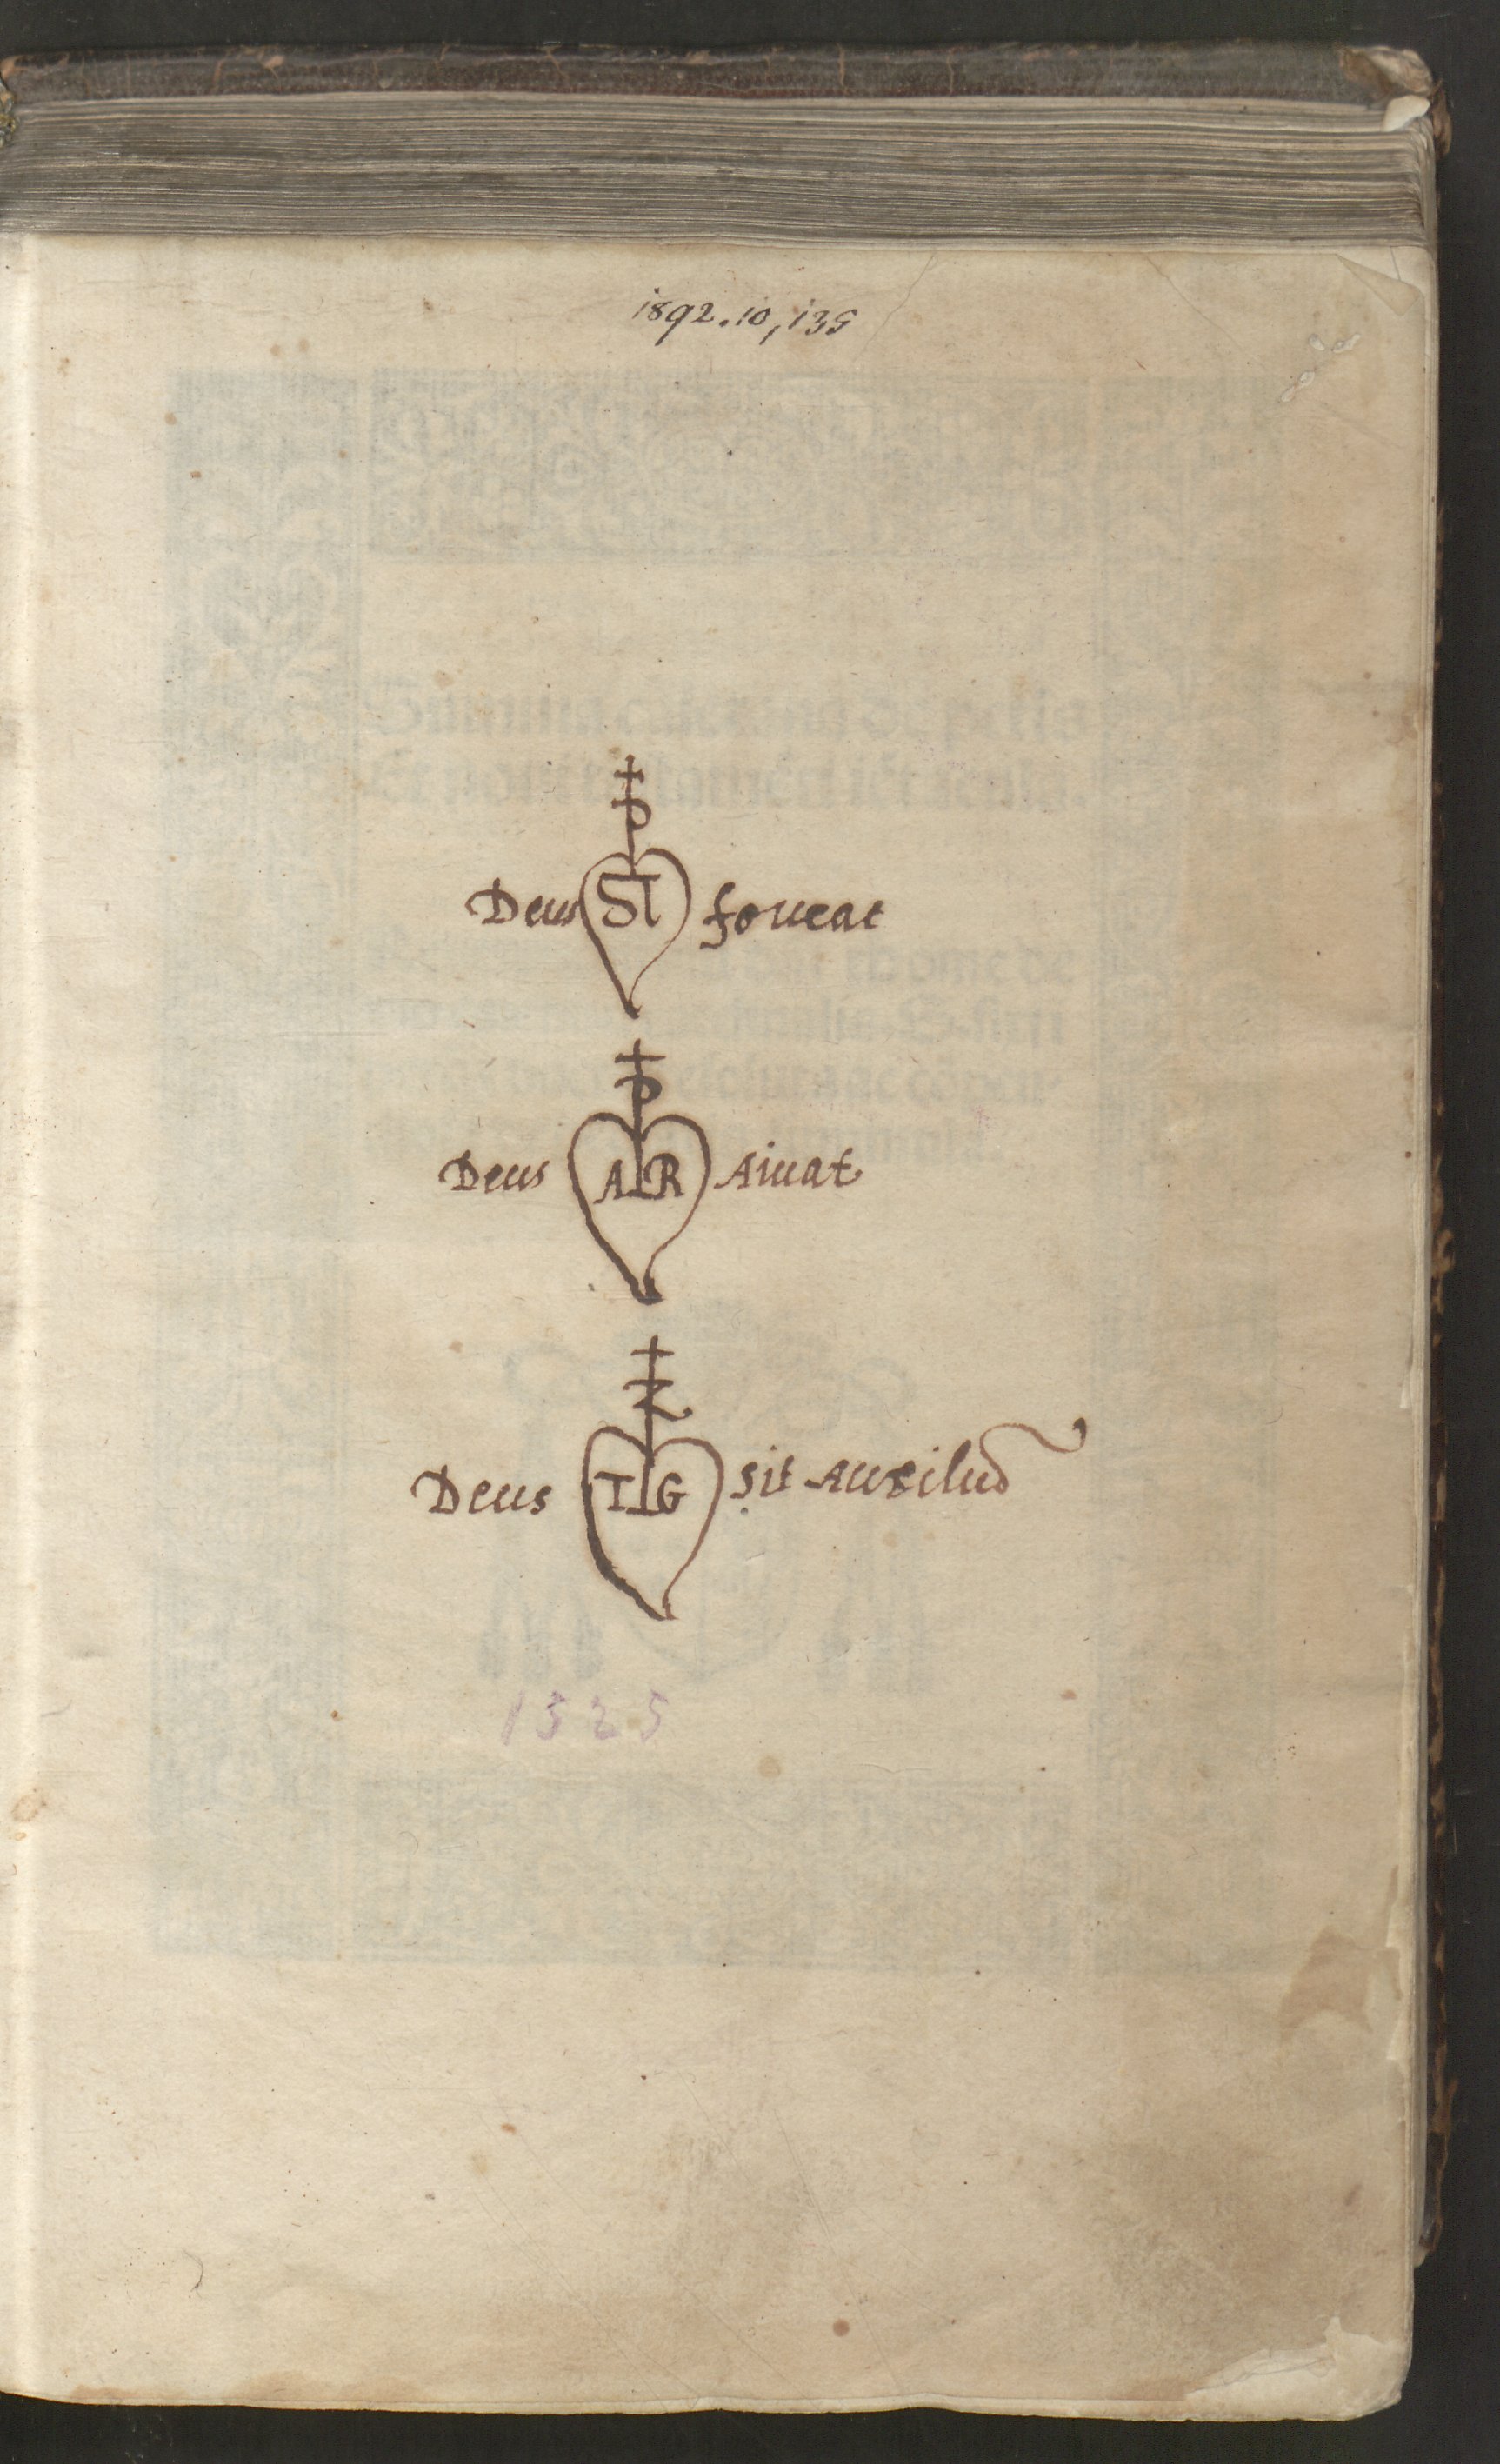 1892.10,135
P
Deus ST foueat
P
Deus A R Aiuat
Z
Deus I G sit auxiluõ
1525